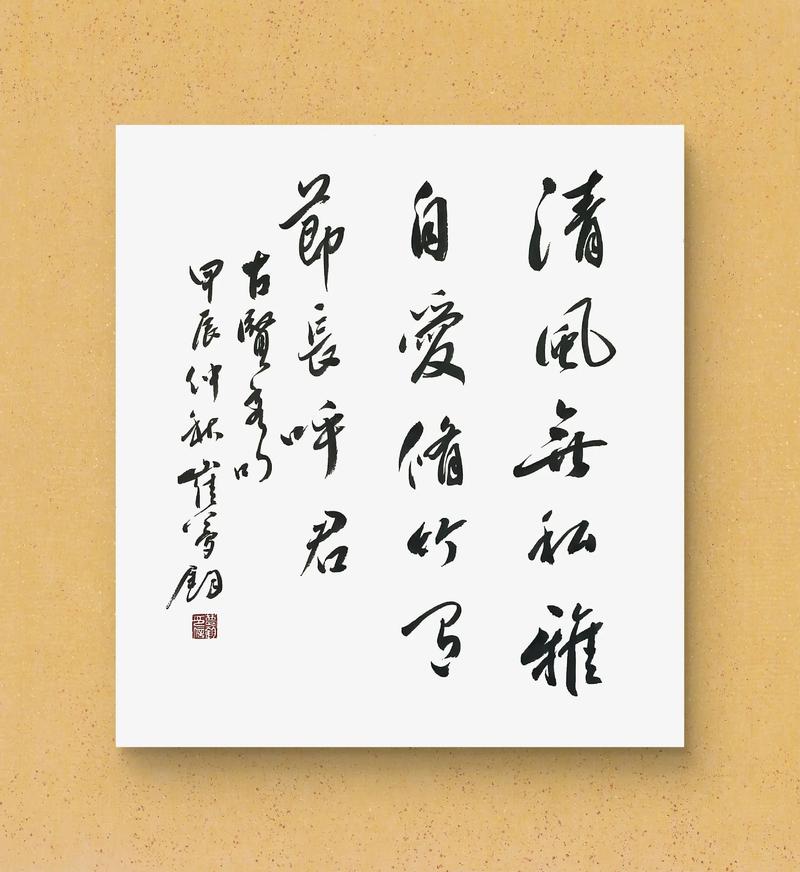 清風無私雅
自愛脩竹有
節長呼君
古賢秀句
甲辰仲秋崔